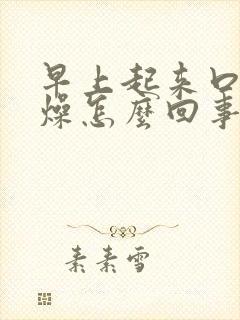 早上起来口
燥怎麽回事
素素雪